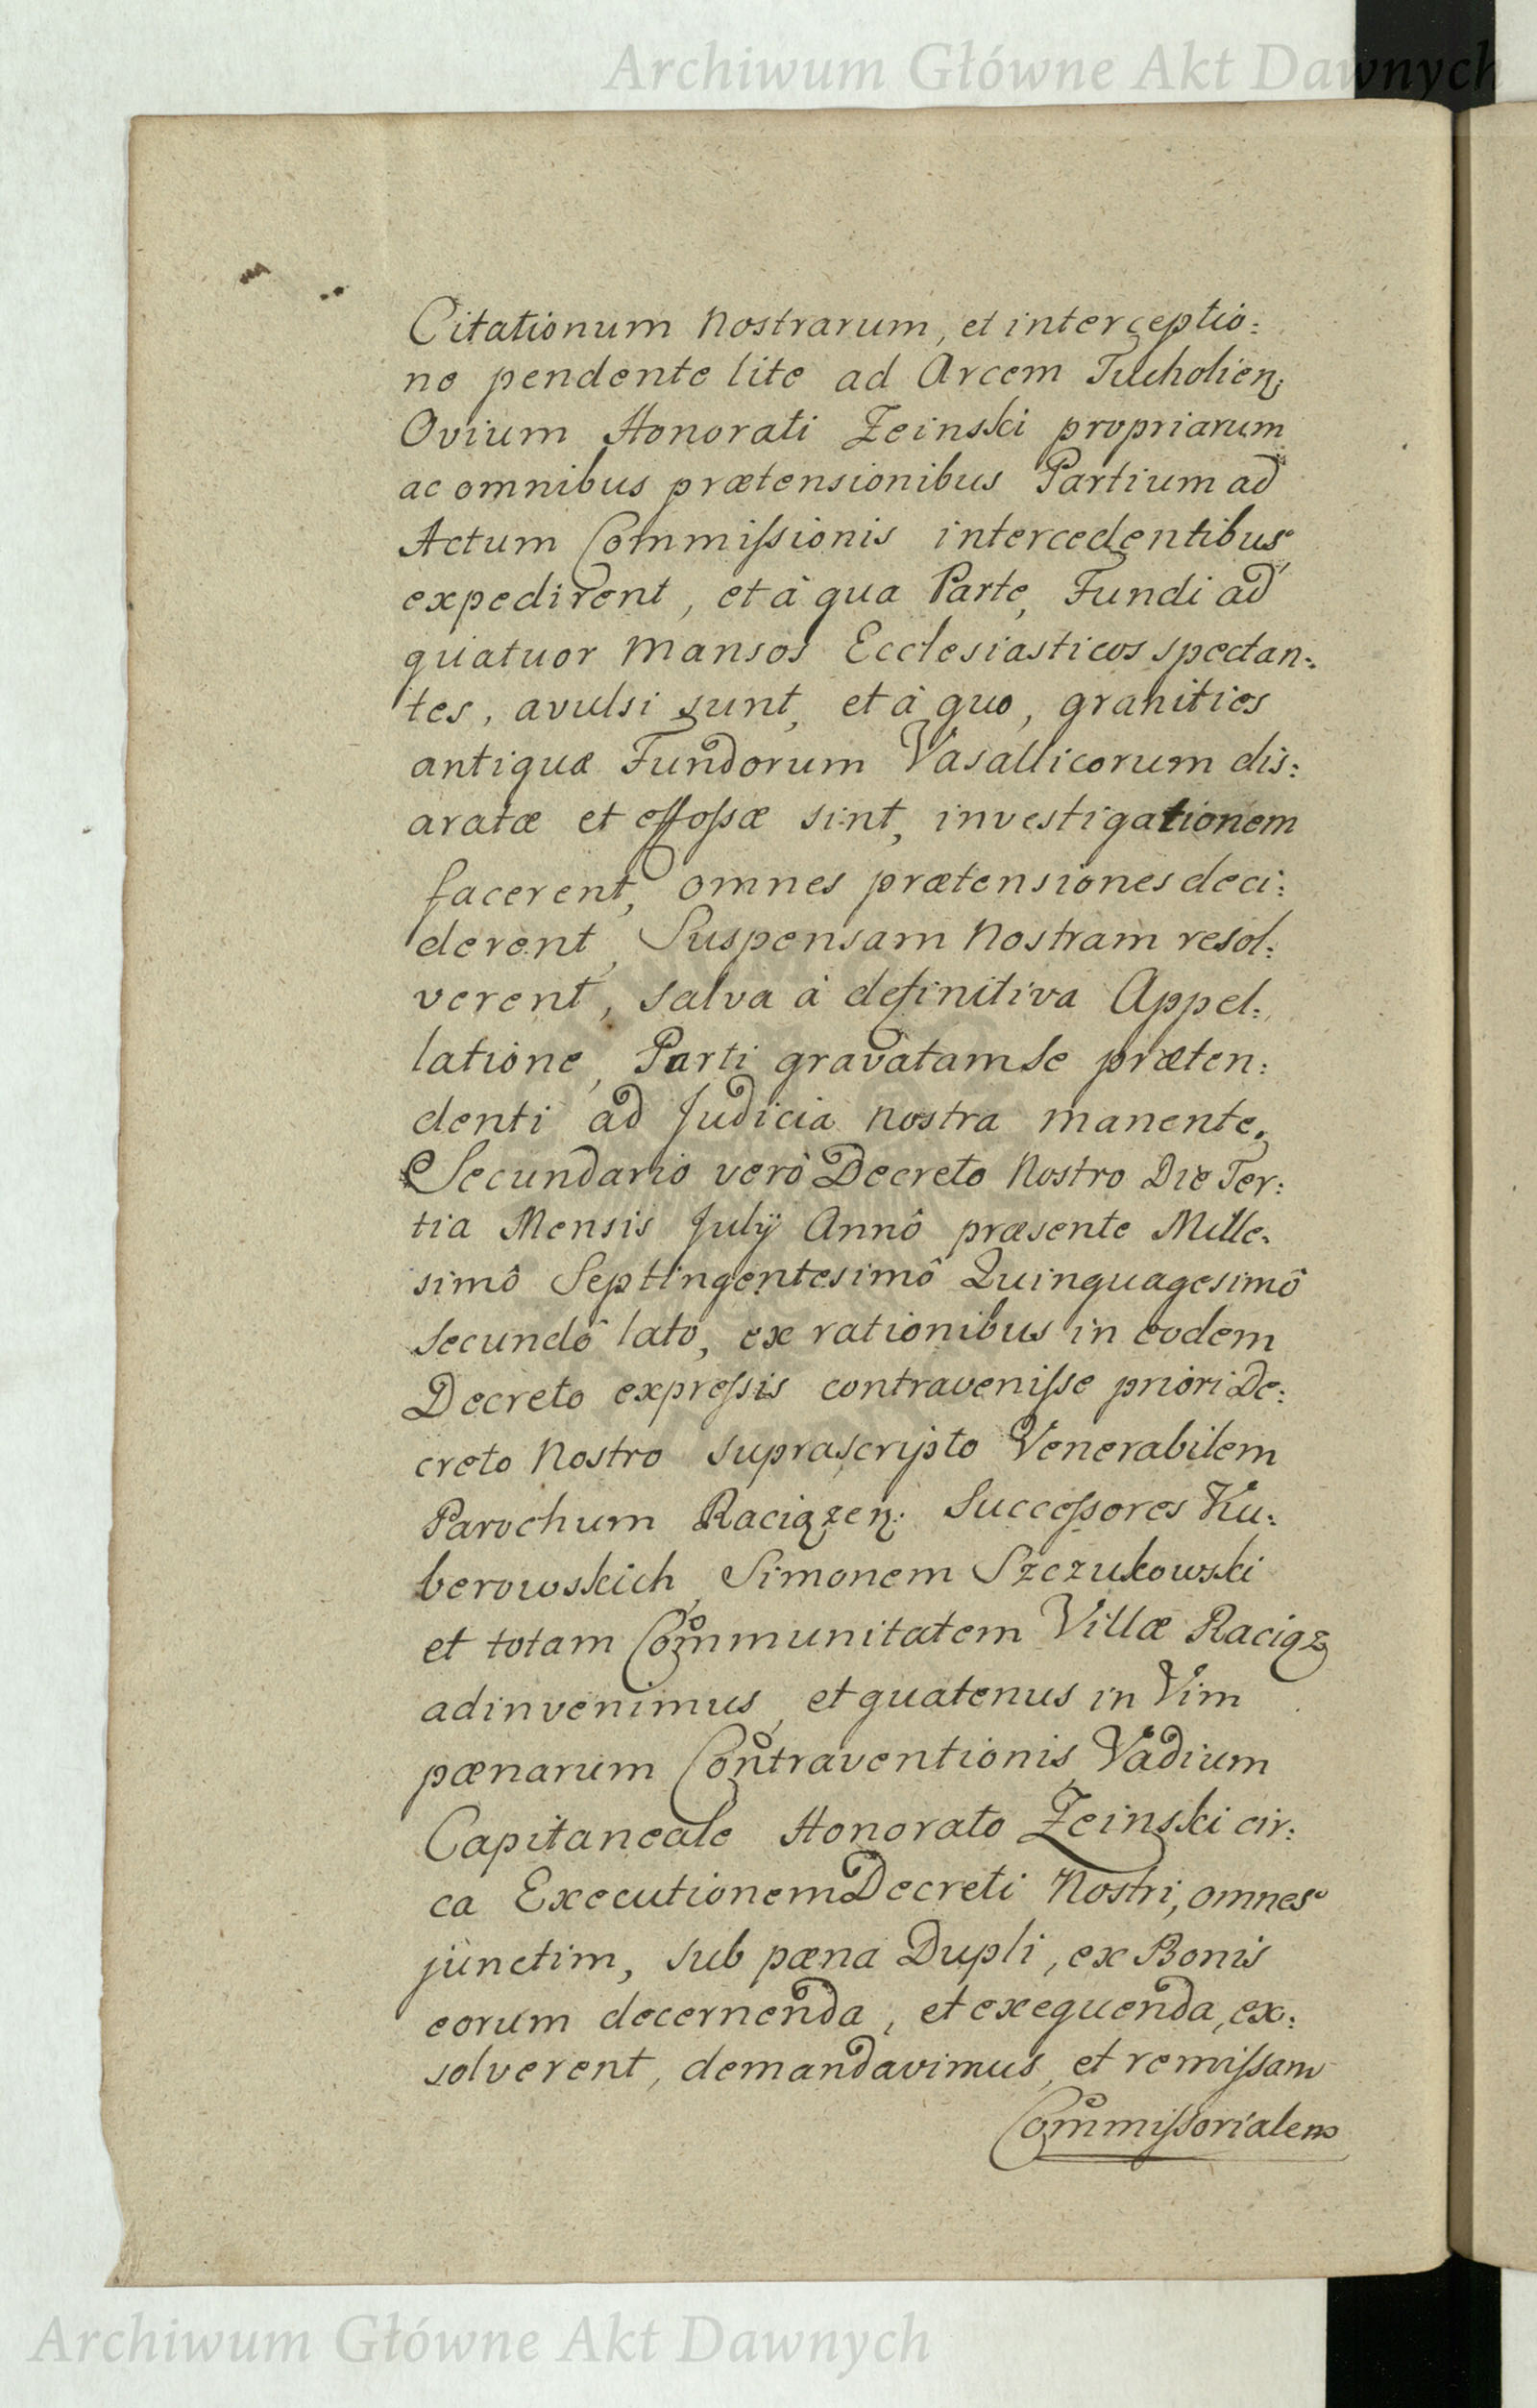 Archiwum Główne Akt Dawnych
Citationum Nostrarum, et interceptio:
ne pendente lite ad Arcem Tucholien:
Ovium Honorati Zeinski propriarum
ac omnibus prætensionibus Partium ad
Actum Commiſsionis intercedentibus
expedirent, et à qua Parte, Fundi ad
quatuor Mansos Ecclesiasticos spectan:
tes, avulsi sunt, et à quo, granities
antiquæ Fundorum Vasallicorum dis:
aratæ et effoſsæ sint, investigationem
facerent, omnes prætensiones deci:
derent, Suspensam Nostram resol:
verent, salva à definitiva Appel:
latione, Parti gravatam se præten:
denti ad Judicia nostra manente.
Secundario verò Decreto Nostro Die Ter:
tia Mensis Julÿ Annô præsente Mille:
simô Septingentesimô Quinquagesimô
secundô lato, ex rationibus in eodem
Decreto expreſsis contraveniſse priori De:
creto Nostro suprascripto Venerabilem
Parochum Raciązen: Succeſsores Ku:
berowskich, Simonem Szczukowski
et totam Communitatem Villæ Raciąz
adinvenimus, et quatenus in Vim
pænarum Contraventionis Vadium
Capitaneale Honorato Zeinski cir:
ca Executionem Decreti Nostri, omnes
junctim, sub pæna Dupli, ex Bonis
eorum decernenda, et exequenda, ex:
solverent, demandavimus, et remiſsam
Commiſsorialem
Archiwum Główne Akt Dawnych